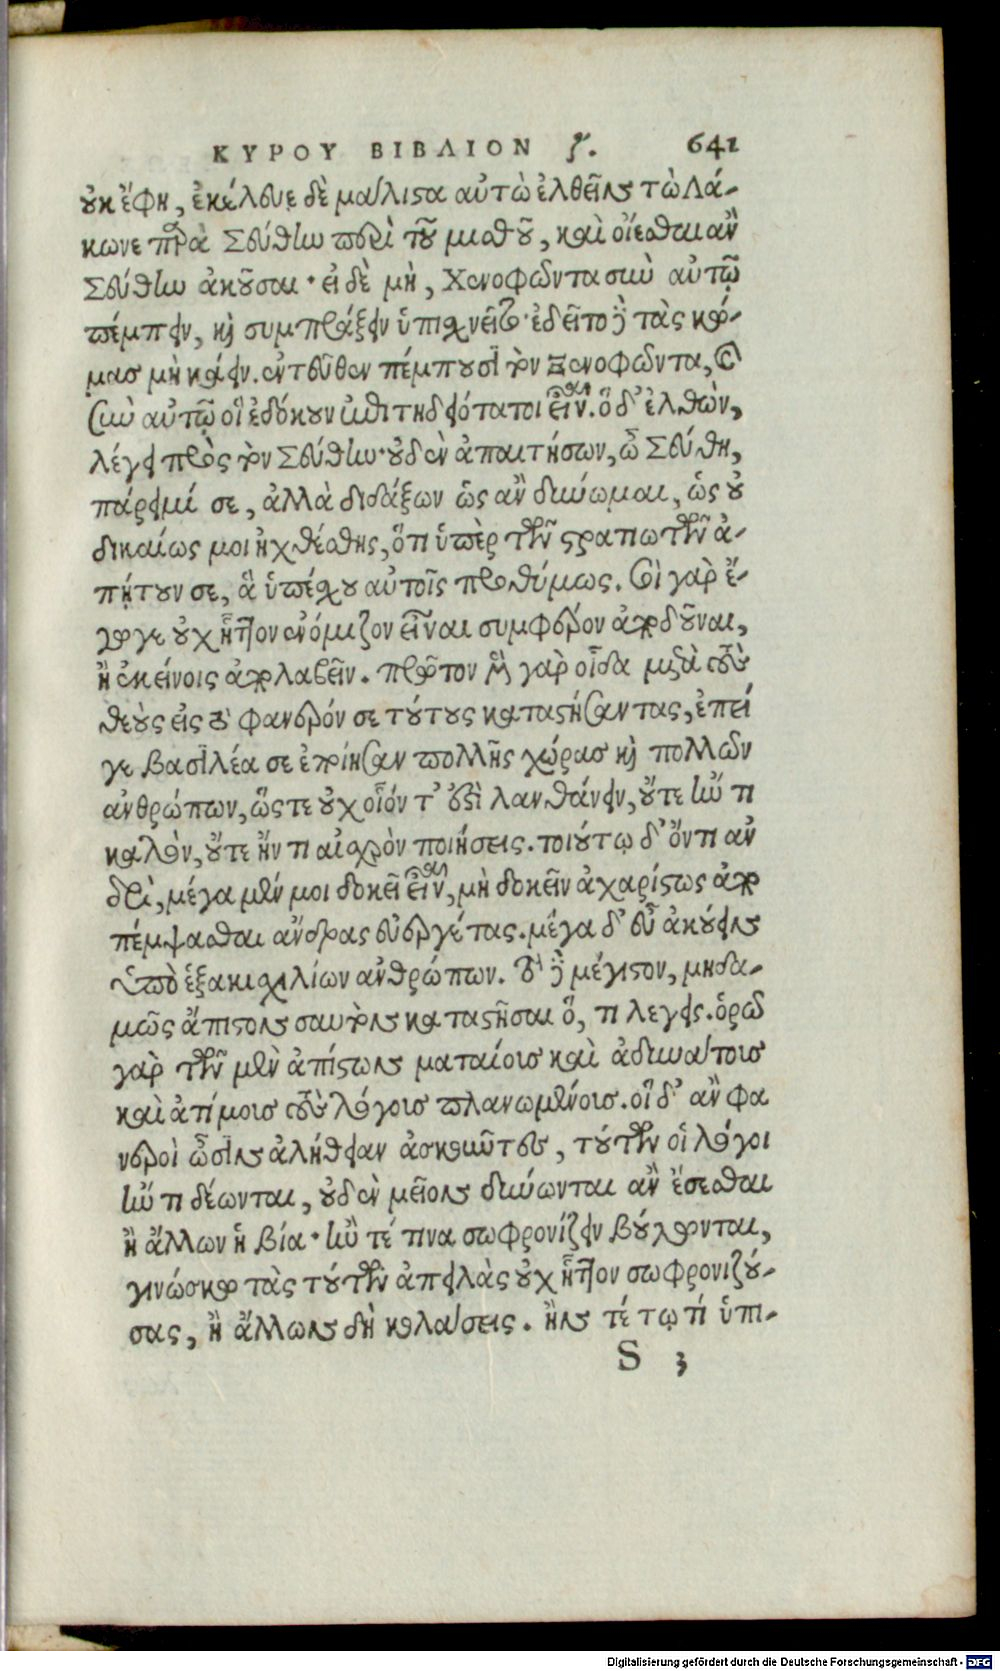 ΚΥΡΟΥ ΒΙΒΛΙΟΝ ζ. 641
οὐκ ἔφη, ἐκέλευε δὲ μάλιστα αὐτὼ ἐλθεῖν τὼ Λά-
κωνε παρὰ Σεύθην περὶ τοῦ μισθοῦ, καὶ οἴεσθαι ἂν
Σεύθην ἀκοῦσαι· εἰ δὲ μὴ, Χενοφῶντα σὺν αὐτῷ
πέμπειν, καὶ συμπράξειν ὑπισχνεῖτο· ἐδεῖτο δὲ τὰς κώ-
μας μὴ κάειν. ἐντεῦθεν πέμπουσι τὸν Ξενοφῶντα, καὶ
σὺν αὐτῷ οἳ ἐδόκουν ἐπιτηδειότατοι εἶναι. ὁ δ’ ἐλθὼν,
λέγει πρὸς τὸν Σεύθην· οὐδὲν ἀπαιτήσων, ὦ Σεύθη,
πάρειμί σε, ἀλλὰ διδάξων ὡς ἂν δύνωμαι, ὡς οὐ
δικαίως μοι ἠχθέσθης, ὅτι ὑπὲρ τῶν στρατιωτῶν ἀ-
πῄτουν σε, ἃ ὑπέσχου αὐτοῖς προθύμως. σοὶ γὰρ ἔ-
γωγε οὐχ ἧττον ἐνόμιζον εἶναι συμφέρον ἀποδοῦναι,
ἢ ἐκείνοις ἀπολαβεῖν. πρῶτον μὲν γὰρ οἶδα μετὰ τοὺς
θεοὺς εἰς τὸ φανερόν σε τούτους καταστήσαντας, ἐπεί
γε βασιλέα σε ἐποίησαν πολλῆς χώρας καὶ πολλῶν
ἀνθρώπων, ὥστε οὐχ οἷόν τ’ ἐστὶ λανθάνειν, οὔτε ἤν τι
καλὸν, οὔτε ἤν τι αἰσχρὸν ποιήσεις. τοιούτῳ δ’ ὄντι ἀν
δρὶ, μέγα μέν μοι δοκεῖ εἶναι, μὴ δοκεῖν ἀχαρίστως ἀπο
πέμψασθαι ἄνδρας εὐεργέτας. μέγα δ’ εὖ ἀκούειν
ὑπὸ ἑξακισχιλίων ἀνθρώπων. τὸ δὲ μέγιστον, μηδα-
μῶς ἄπιστον σαυτὸν καταστῆσαι ὅ, τι λέγεις. ὁρῶ
γὰρ τῶν μὲν ἀπίστων ματαίοις καὶ ἀδυνάτοις
καὶ ἀτίμοις τοὺς λόγοις πλανωμένοις. οἳ δ’ ἂν φα
νεροὶ ὦσιν ἀλήθειαν ἀσκοῦντες, τούτων οἱ λόγοι
ἤν τι δέωνται, οὐδὲν μεῖον δύνωνται ἂν ἔσεσθαι
ἢ ἄλλων ἡ βία· ἤν τέ τινα σωφρονίζειν βούλωνται,
γινώσκω τὰς τούτων ἀπειλὰς οὐχ ἧττον σωφρονιζού-
σας, ἢ ἄλλων δὴ κολάσεις. ἤν τέ τῳ τί ὑπι-
S 3
Digitalisierung gefördert durch die Deutsche Forschungsgemeinschaft - DFG